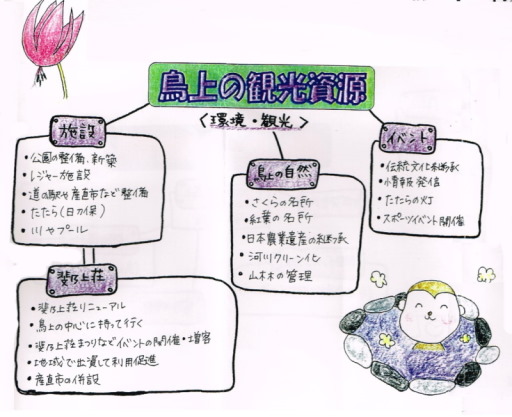 鳥上の観光資源
<環境・観光>
施設
・公園の整備、新築
・レジャー施設
・道の駅や産直市など整備
・たたら(日刀保)
・川やプール
斐乃上荘
・斐乃上荘リニューアル
・鳥上の中心に持って行く
・斐乃上荘まつりなどイベントの開催・増客
・地域で出資して利用促進
・産直市の併設
鳥上の自然
・さくらの名所
・紅葉の名所
・日本農業遺産の継承
・河川クリーン化
・山林の管理
イベント
・伝統文化継承
・情報発信
・たたらの灯
・スポーツイベント開催